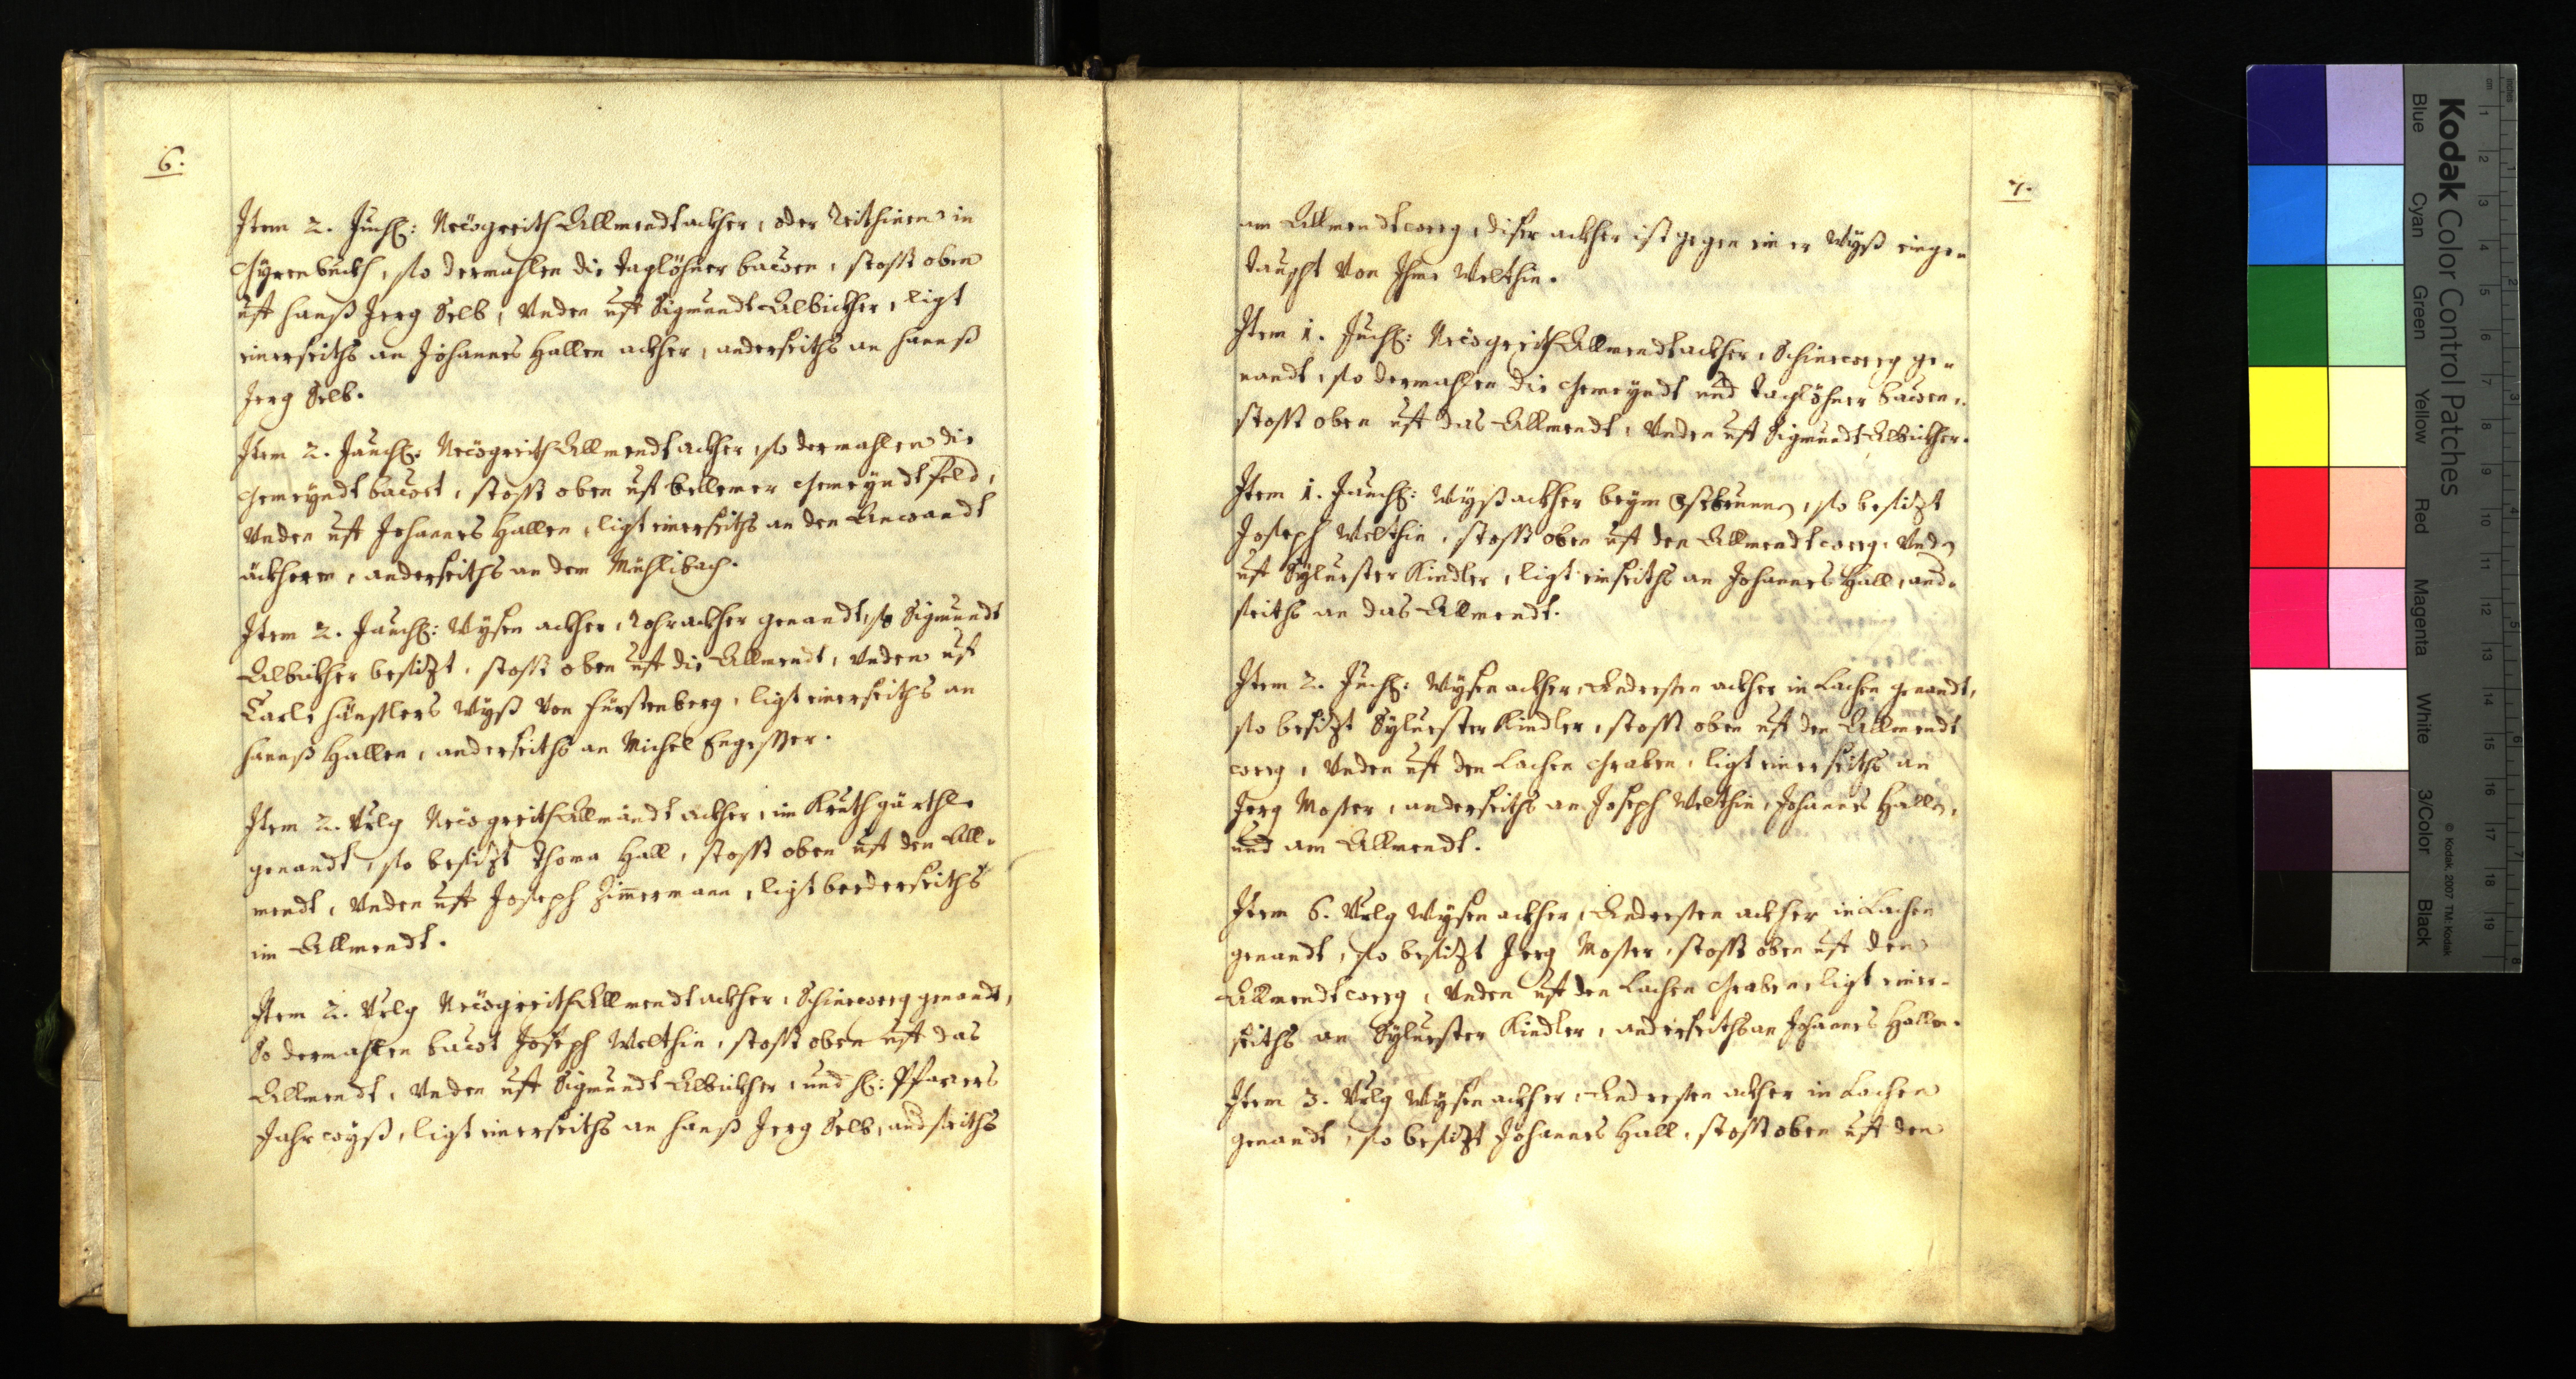 6.
Item 2. Juchȩ: Neügreith Allmendtackher, oder Reithinen in
Gÿrenbückh, so dermahlen die taglöhner bawen, stosst oben
uff hanß Jerg Selb, Vnden uff Sigmundt Albickher, ligt
einerseiths an Johannes Hallen ackher, anderseiths an hannß
Jerg Selb.
Item 2. Jauchȩ: Neügreith Allmendtackher, so dermahlen die
Gemeÿndt bawet, stosst oben uff bellemer Gemeÿndt feld,
Vnden uff Johannes Hallen, ligt einerseiths an den Anwandt
äckheren, anderseiths an dem Mühlibach.
Item 2. Jauchȩ: Wÿsen ackher, Rohrackher genandt, so Sigmundt
Albickher besitzt, stosst oben uff die Allmendt, Vnden uff
Carle hänslers Wÿß Von fürstenberg, ligt einerseiths an
hannß Hallen, anderseiths an Michel Engesser.
Item 2. Vrlg Neügreith Allmandt ackher, im Kruthgärthle
genandt, so besitzt Thoma Hall, stosst oben uff den All-
mendt, Vnden uff Joseph Zim̄ermann, ligt beederseiths
im Allmendt.
Item 2. Vrlg Neügreith Allmendtackher, Schinerweeg genandt,
So dermahlen bawt Joseph Welthin, stosst oben uff das
Allmendt, Vnden uff Sigmundt Albickher, und Hȩ: Pfarrers
Jahr wÿß, ligt einerseiths an hanß Jerg Selb, andseiths
7.
am Allmendtweeg, diser ackher ist gegen einer Wÿß einge-
tauscht von Ihme Welthin.
Item 1. Juchȩ: Neügreith Allmendtackher, Schinerweeg ge-
nandt, so dermahlen die Gemeÿndt und taglöhner bawen,
stosst oben uff das Allmendt, Vnden uff Sigmundt Albickher.
Item 1. Jauchȩ: Wÿßackher beÿm Ostbrunnen, so besitzt
Joseph Welthin, stosst oben uff den Allmendtweeg, Vnden
uff Sÿluester Kindler, ligt einseiths an Johannes Hall, and-
seiths an das Allmendt.
Item 2. Juchȩ: Wÿsenackher, Andresen ackher in Lachen genandt,
so besitzt Sÿluester Kindler, stosst oben uff den Allmendt
weeg, Vnden uff den Lachen Graben, ligt einerseiths an
Jerg Moser, anderseiths an Joseph Welthin, Johannes Hallen,
und am Allmendt.
Item 6. Vrlg Wÿsenackher, Andresen ackher in Lachen
genandt, so besitzt Jerg Moser, stosst oben uff den
Allmendtweeg, Vnden uff den Lachen Graben, ligt einer-
seiths an Sÿluester Kindler, anderseiths an Johannes Hallen.
Item 3. Vrlg Wÿsenackher, Andresen ackher in Lachen
genandt, so besitzt Johannes Hall, stosst oben uff den
Kodak Color Control Patches
Blue Cyan Green Yellow Red Magenta White 3/Color Black
© Kodak, 2007 TM: Kodak